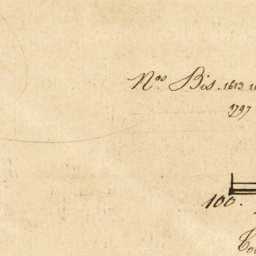 Nos Bis. 1613
1797
100.